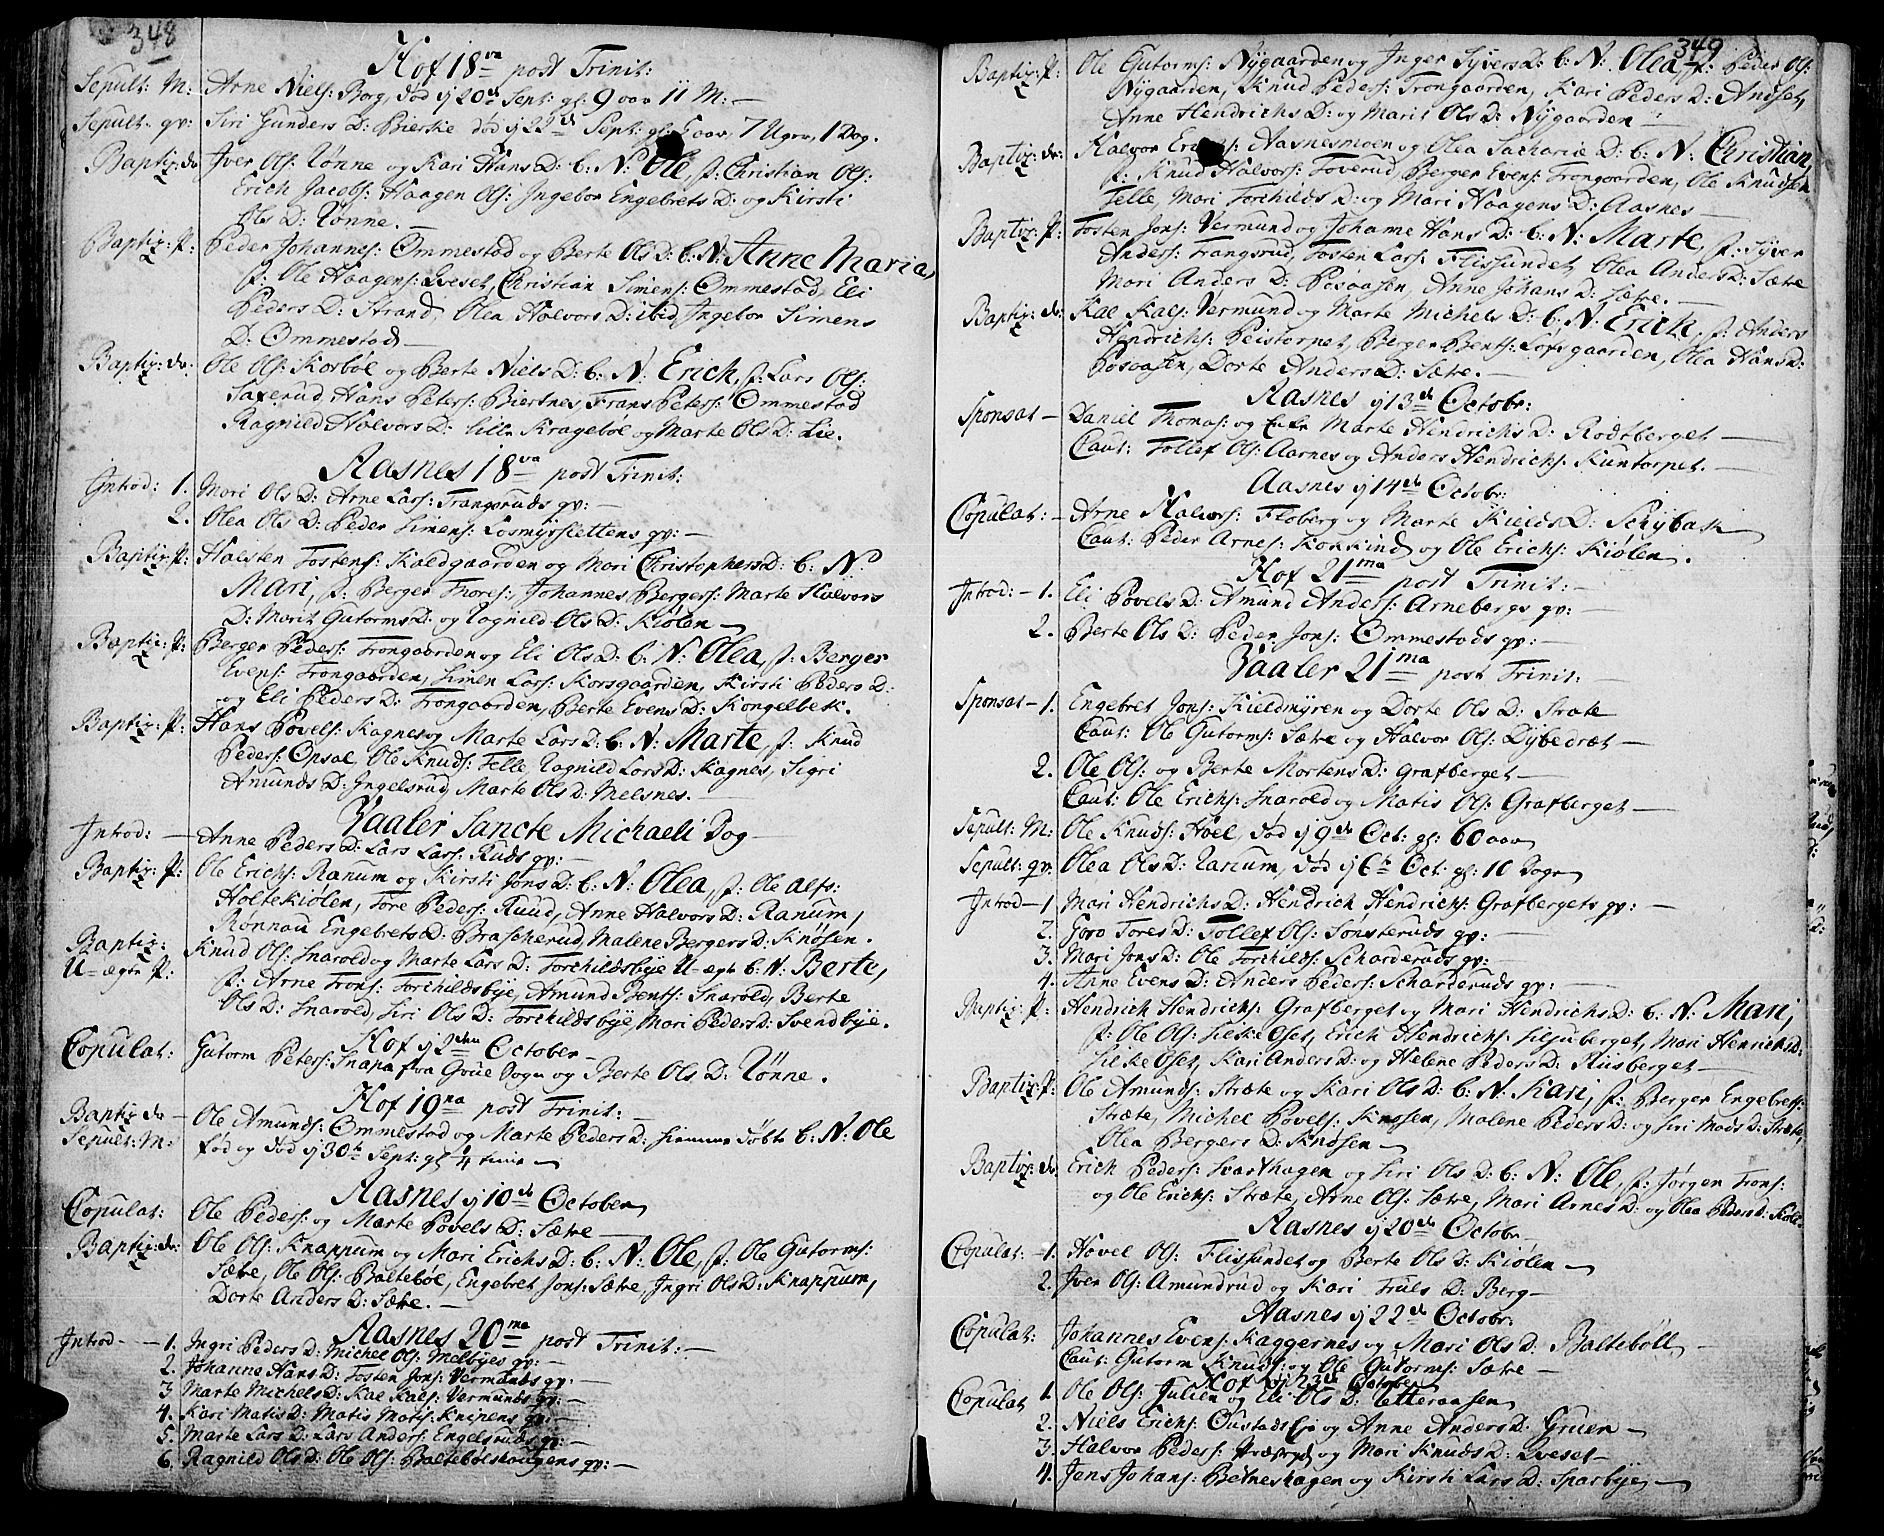 348
Hof 18va post Trinit:
Sepult: M: Arne Niels: Borg, død 20de Sept: gl: 9 aar 11 M:
Sepult: qv: Siri Gunders D: Bierke død 22de Sept: gl: aar, 7 Uger, 1 Dag.
Baptiz: do Iver Ols: Tønne og Kari Hans D: b: N: Ole, f: Christian Ols:
Erich Jacobs: Haagen Ols: Ingebor Engebrets D: og Kirsti
Ols D: Tønne.
Baptiz: p: Peder Johannes: Ommestad og Berte Ols D: b: N: Anne Maria,
f: Ole Haagens: Kveset, Christian Simens: Ommestad, Eli
Peders D: Strand, Olea Halvors D: ibid, Ingebor Simens
D: Ommestad
Baptiz: do: Ole Ols: Korbøl og Berte Niels D: b: N: Erich, f: Lars Ols:
Saxerud, Hans Peters: Biertnes, Frans Peters: Ommestad
Ragnild Halvors D: lille Kragebøl og Marte Ols D: Lie.
Aasnes 18va post Trinit:
Introd: 1. Mari Ols D: Arne Lars: Trangsruds qv:
2. Olea Ols D: Peder Simens: Losmyrslettens qv:
Baptiz: p: Halsten Tostens: Kaldgaarden og Mari Christophers D: b: N:
Mari, f: Berger Tores: Johannes Bergers: Marte Halvors
D: Marit Gutorms D: og Ragnild Ols D: Kiølen
Baptiz: p: Berger Peders: Trongaarden og Eli Ols D: b: N: Olea, f: Berger
Evens: Trongaarden, Simen Lars: Korsgaarden, Kirsti Peders D:
og Eli Peders D: Trongaarden, Berte Evens D: Kongelbek.
Baptiz: p: Hans Povels: Kagnes og Marte Lars D: b: N: Marte, f: Knud
Peders: Opsal, Ole Knuds: Telle, Ragnild Lars D: Kagnes, Sigri
Amunds D: Ingelsrud, Marte Ols D: Melsnes.
Vaaler Sancte Michaeli Dag
Introd: Anne Peders D: Lars Lars: Ruds qv:
Baptiz: p: Ole Erichs: Ranum og Kirsti Jons D: b: N: Olea, f: Ole Alfs:
Holtekiølen, Tore Peders: Ruud, Anne Halvors D: Ranum,
Rønnau Engebrets D: Brascherud, Malene Bergers D: Knøsen.
Baptiz: Knud Ols: Snarold og Marte Lars D: Torchildsbye U-egte b: N: Berte,
U-egte p: f: Arne Trons: Torchildsbye, Amund Bents: Snarold, Berte
Ols D: Snarold, Siri Ols D: Torchildsbye, Mari Peders D: Svendbye.
Hof 2den October
Copulat: Gutorm Peters: Snapa fra Grue Sogn og Berte Ols D: Tønne.
Hof 19na post Trinit:
Baptiz do Ole Amunds: Ommestad og Marte Peders D: hiemme døbte b: N: Ole
Sepult: M: fød og død 30te Sept: gl 4 timer
Aasnes 10de October
Copulat: Ole Peders: og Marte Povels D: Sætre
Baptiz: do: Ole Ols: Knappum og Mari Erichs D: b: N: Ole, f: Ole Gutorms:
Sætre, Ole Ols: Baltebøl, Engebret Jons: Sætre, Ingri Ols D: Knappum,
Dorte Anders D: Sætre.
Aasnes 20ma post Trinit:
Introd 1. Ingri Peders D: Michel Ols: Melbyes qv:
2. Johanne Hans D: Tosten Jons: Vermunds qv:
3. Marte Michels D: Kal Kals: Vermunds qv:
4. Kari Matis D: Matis Matis: Knipens qv:
5. Marte Lars D: Lars Anders: Engelsruds qv:
6. Ragnild Ols D: Ole Ols: Baltebølshaugens qv:
349
Baptiz: p: Ole Gutorms: Nygaarden og Inger Syvers D: b: N: Olea, f: Peder Ols:
Nygaarden, Knud Peders: Trongaarden, Kari Peders D: Andset,
Anne Hendrichs D: og Marit Ols D: Nygaarden
Baptiz: do: Halvor Aasnesmoen og Olea Zacharia D: b: N: Christian,
f: Knud Halvors: Toverud, Berger Evens: Trongaarden, Ole Knudsen
Telle, Mari Torchilds D: og Mari Haagens D: Aasnes
Baptiz: p: Tosten Jons: Vermund og Johanne Hans D: b: N: Marte, f: Syver
Anders: Trangsrud, Tosten Lars: Flissundet, Olea Anders D: Sætre
Mari Anders D: Posaasen, Anne Johans D: Sætre.
Baptiz: do: Kal Kals: Vermund og Marte Michels D: b: N: Erich, f: Anders
Hendrichs: Peistorpet, Berger Bents: Lofsgaarden, Olea Hans D:
Posaasen, Dorte Anders D: Sætre.
Aasnes 13de Octobr:
Sponsat Daniel Thomas: og Enke Marte Hendrichs D: Rodtberget
Caut: Tollef Ols: Aarnes og Anders Hendrichs: Kuntorpet.
Aasnes 14de Octobr:
Copulat: Arne Halvors: Floberg og Marte Kields D: Schybak
Caut: Peder Arnes: Konkind og Ole Erichs: Kiølen.
Hof 21ma post Trinit:
Introd: 1. Eli Povels D: Amund Anders: Arnebergs qv:
2. Berte Ols D: Peder Jons: Ommestads qv:
Vaaler 21ma post Trinit:
Sponsat 1. Engebret Jons: Kieldmyren og Dorte Ols D: Stræte
Caut: Ole Gutorms: Sætre og Halvor Ols: Dybedræt
2. Ole Ols: og Berte Mortens D: Grafberget
Caut: Ole Erichs: Snarold og Matis Ols: Grafberget
Sepult: M: Ole Knuds: Hoel, død 9de Oct: gl: 60 aar
Sepult: qv: Olea Ols D: Ranum, død 6te Oct: gl: 10 Dage
Introd 1 Mari Hendrichs D: Hendrich Hendrichs: Grafbergets qv:
2. Goro Tores D: Tollef Ols: Sønsteruds qv:
3. Mari Jons D: Ole Torchilds: Scharderuds qv:
4. Anne Evens D: Anders Peders: Scharderuds qv:
Baptiz: p: Hendrich Hendrichs: Grafberget og Mari Hendrichs D: b: N: Mari,
f: Ole Ols: Silkeoset, Erich Hendrichs: Siljuberget, Mari Henrichs D:
Silkeoset, Kari Anders D: og Helene Peders D: Riisberget
Baptiz: p: Ole Amunds: Stræte og Kari Ols D: b: N: Kari, f: Berger Engebrets:
Stræte, Michel Povels: Knøsen, Malene Peders D: og Siri Mads D: Stræte,
Olea Bergers D: Knøsen
Baptiz: do: Erich Peders: Svarthagen og Siri Ols D: b: N: Ole, f: Jørgen Trons:
og Ole Erichs: Stræte, Arne Ols: Sætre, Mari Arnes D: og Olea Peders D:
Aasnes 20de Octobr:
Copulat: 1. Hovel Ols: Flissundet og Berte Ols D: Kiølen
2. Iver Ols: Amundrud og Kari Truls D: Berg
Aasnes 22de Octobr:
Copulat: Johannes Evens: Kaggernes og Mari Ols D: Baltebøll
Caut: Gutorm Knuds: og Ole Gutorms: Sætre
Hof 23de October
Copulat 1. Ole Ols: Julien og Eli Ols D: Etteraasen
2. Niels Erichs: OustadsEje og Anne Anders D: Gruen
3. Halvor Peders: Præstgrd og Mari Knuds D: Kveset
4. Jens Johans: Betneshagen og Kirsti Lars D: Sparbye